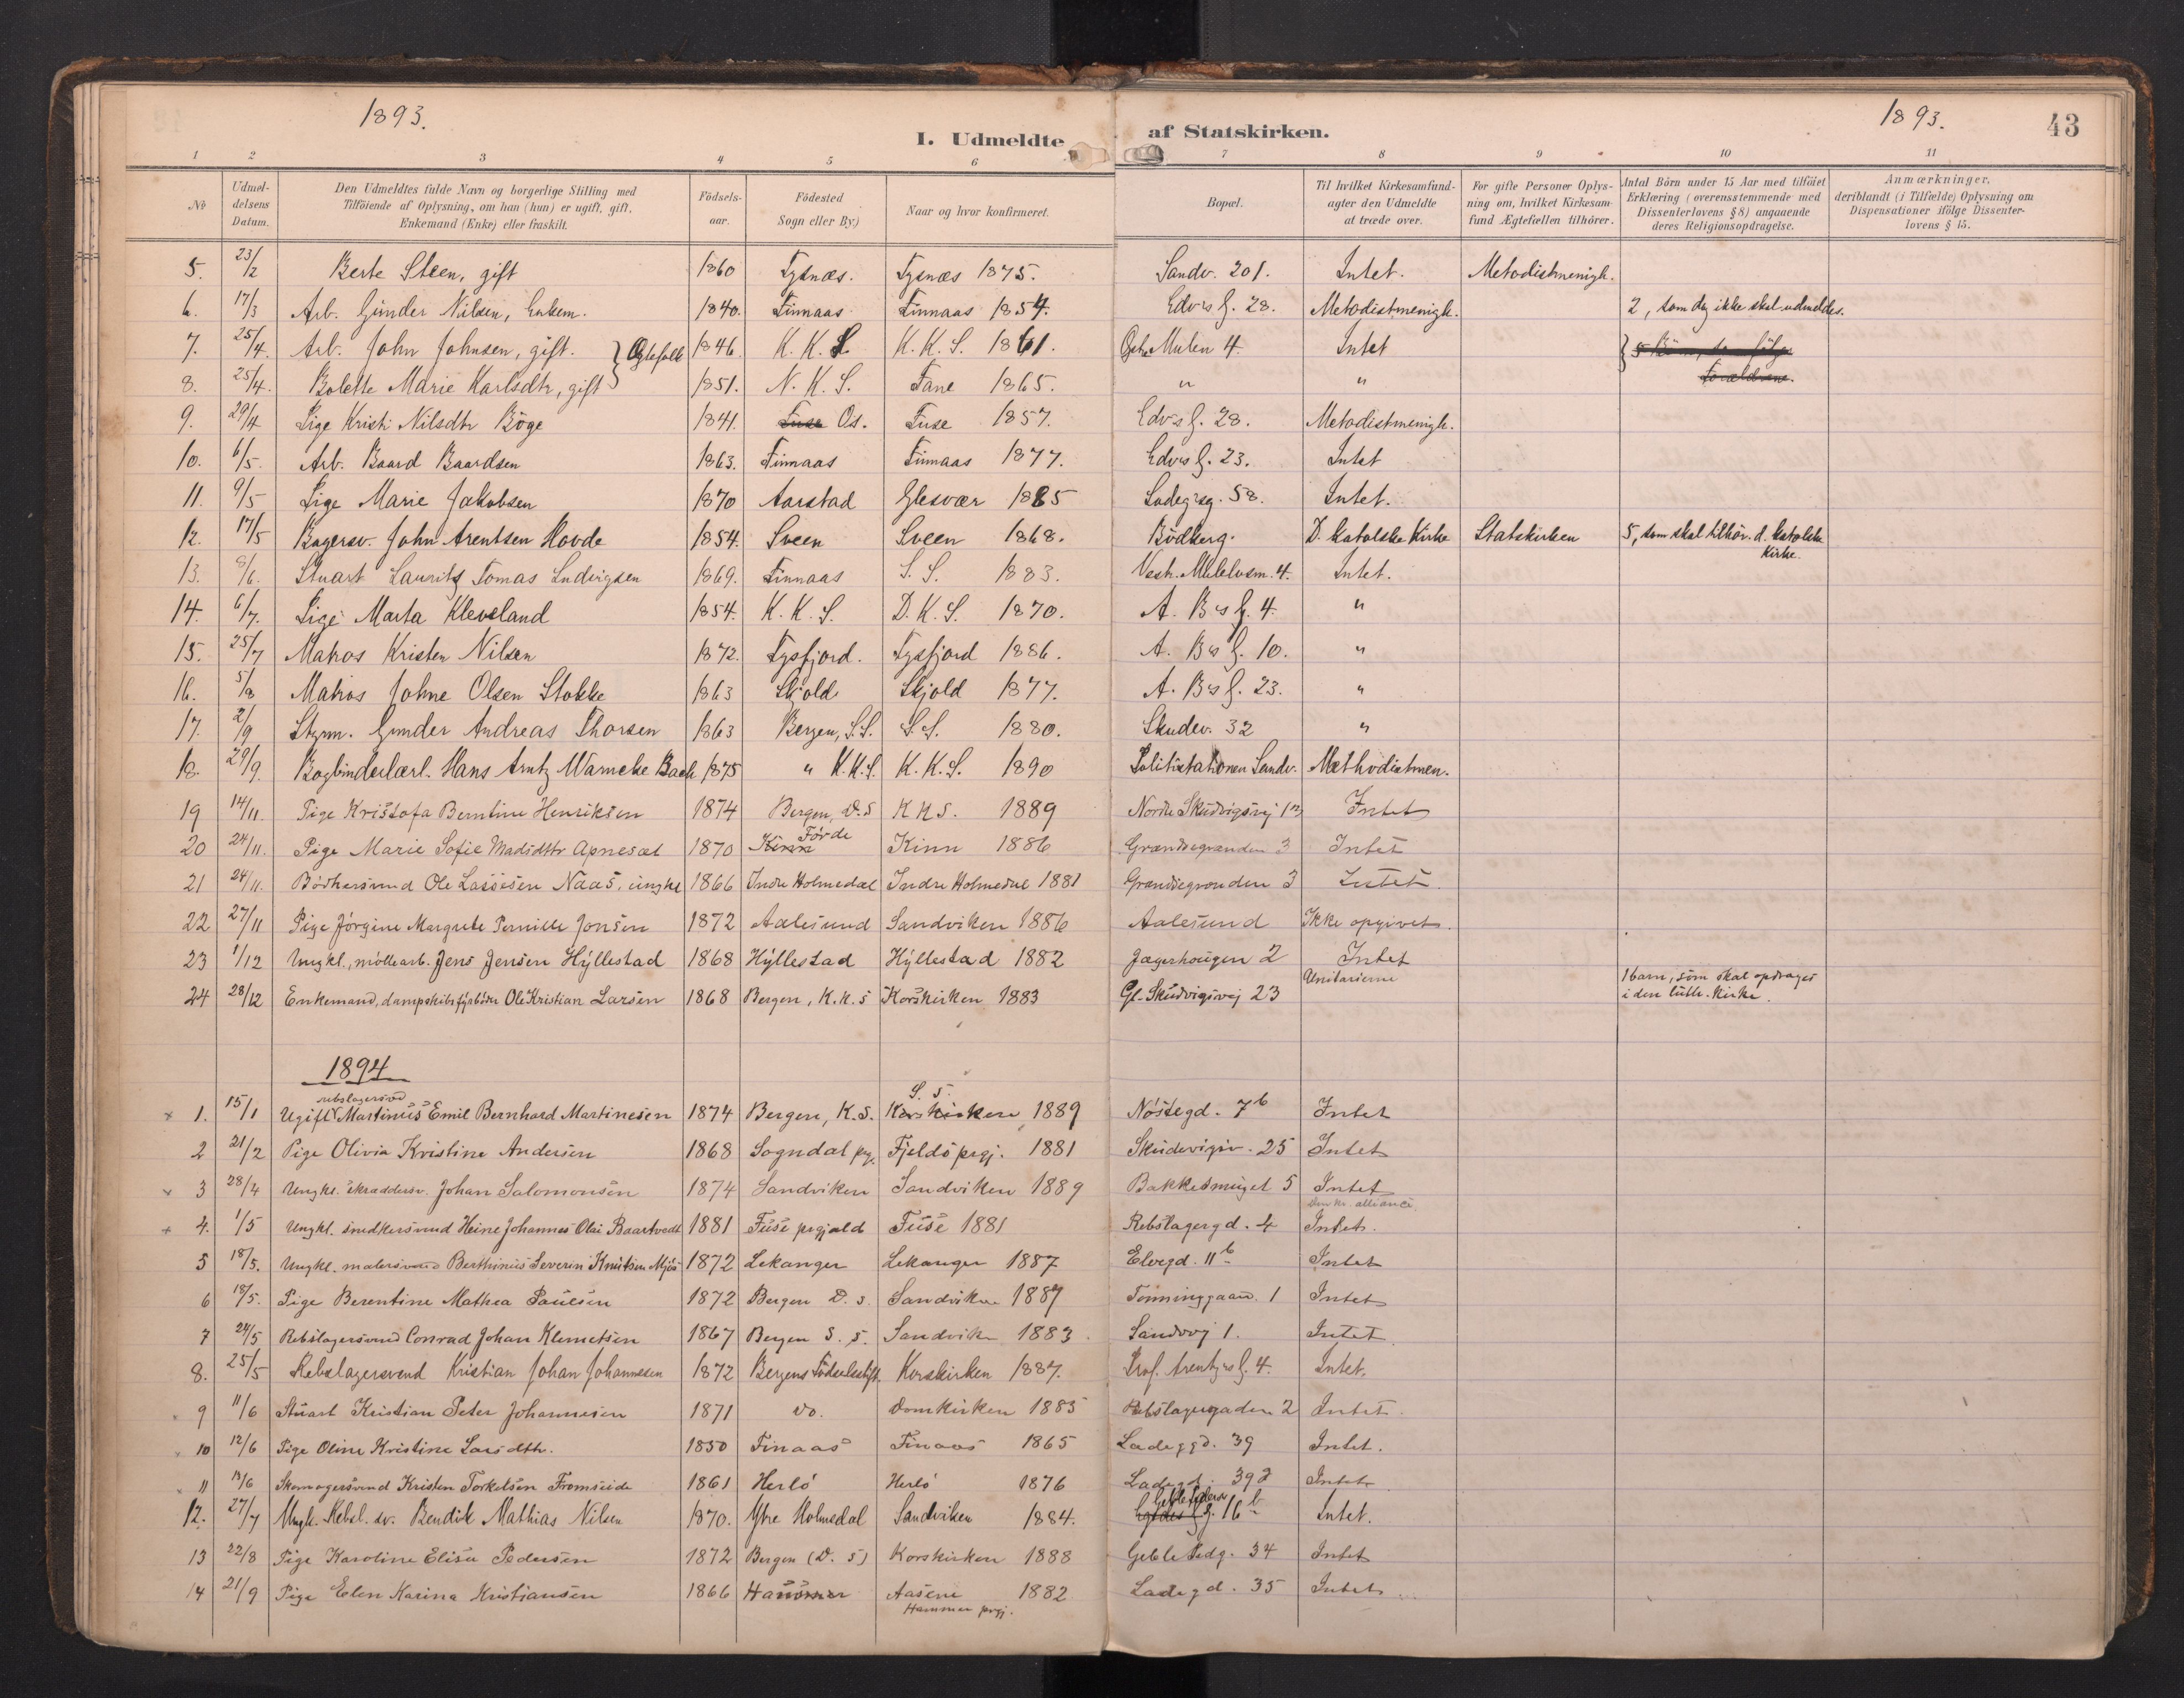 1893.
I. Udmeldte af Statskirken.
1893.
43
1 2 3 4 5 6 7 8 9 10 11
No
Udmeldelsens Datum.
Den Udmeldtes fulde Navn og borgerlige Stilling med Tilföiende af Oplysning, om han (hun) er ugift, gift, Enkemand (Enke) eller fraskilt.
Födselsaar.
Födested Sogn eller By.)
Naar og hvor konfirmeret.
Bopæl.
Til hvilket Kirkesamfund agter den Udmeldte at træde over.
For gifte Personer Oplysning om, hvilket Kirkesamfund Ægtefællen tilhörer.
Antal Börn under 15 Aar med tilföiet Erklæring (overensstemmende med Dissenterlovens § 8) angaaende deres Religionsopdragelse.
Anmærkninger, deriblandt (i Tilfælde) Oplysning om Dispensationer ifölge Dissenterlovens § 15.
5. 23/2 Berte Steen, gift 1860 Tysnæs. Tysnæs 1875. Sandv. 201. Intet. Metodistmenigh.
6. 17/3 Arb. Gunder Nilsen, Enkem. 1840. Finnaas Finnaas 1854. Edvs g. 28. Metodistmenigh. 2, som dog ikke skal udmeldes.
7. 25/4. Arb. John Johnsen, gift. } Ægtefolk 1846. K. K. S. K. K. S. 1861. Mulen 4. Intet
8. 25/4. Bolette Marie Karlsdtr, gift 1851. N. K. S. Fane 1865. " " Forældrene.
9. 29/4 Pige Kristi Nilsdtr Böge 1841. Fuse Os. Fuse 1857. Edvs g. 28. Metodistmenigh.
10. 6/5. Arb. Baard Baardsen 1863. Finnaas Finnaas 1877. Edvs g. 23. Intet
11. 9/5 Pige Marie Jakobsen 1870 Aarstad Glesvær 1885 Ladegsg. 58. Intet.
12. 17/5 Bagersv. John Arentsen Hovde 1854. Sveen Sveen 1868. Bödkerg. D. katolske Kirke Statskirken 5, som skal tilhör. d. katolske Kirke.
13. 8/6. Stuart Laurits Tomas Ludvigsen 1869. Finnaas S. S. 1883. Intet.
14. 6/7. Pige Marta Kleveland 1854. K. K. S. D. K. S. 1870. A. Bs g. 4. "
15. 25/7 Matros Kristen Nilsen 1872. Tysfjord. Tysfjord 1886. A. Bs g. 10. "
16. 5/8 Matros Johne Olsen Stokke 1863 Skjold Skjold 1877. A. Bs g. 23. "
17. 2/9 Styrm. Gunder Andreas Thorsen 1863 Bergen, S.S. S.S. 1880. Skudev. 32 "
18. 29/9. Bogbinderlærl. Hans Arntz Warncke Bach 1875 " K.K.S. K. K. S. 1890 Politistationen Sandv. Methodistmen.
19 14/11. Pige Kristofa Berntine Henriksen 1874 Bergen, D.S K K S. 1889 Norde Skudvigsvej Intet
20 24/11. Pige Marie Sofie Madsdttr Apnesæt 1870 Kinn Førde Kinn 1886 Grændsegrænden 3 Intet
21 24/11. Bödkersvend Ole Lassesen Naas, ungkl 1866 Indre Holmedal Indre Holmedal 1881 Grændsegrænden 3 Intet.
22 27/11 Pige Jörgine Margrete Pernille Jonsen 1872 Aalesund Sandviken 1886 Aalesund Ikke opgivet.
23 1/12 Ungkl., möllearb. Jens Jensen Hyllestad 1868 Hyllestad Hyllestad 1882 Jægerhougen 2 Intet
24 28/12 Enkemand, dampskibsfyrböder Ole Kristian Larsen 1868 Bergen, K.K.S Korskirken 1883 Gl. Skudvigsvej 23 Unitarierne 1 barn, som skal opdrages i den luth. kirke.
1894
x 1. 15/1 Ugift rebslagersvd Martinus Emil Bernhard Martinesen 1874 Bergen, K.S. Korskirken S. S. 1889 Nöstegd. 7b Intet
2 21/2 Pige Olivia Kristine Andersen 1868 Sogndal prg. Fjeldö prgj. 1881 Skudevigsv. 25 Intet
x 3 28/4 Ungkl. skræddersv. Johan Salomonsen 1874 Sandviken Sandviken 1889 Bakkesmuget 5 Intet
Den kr. alliance.
x 4. 1/5 Ungkl. snedkersvend Heine Johannes Olai Baartvedt 1881 Fuse prgjæld Fuse 1881 Rebslagergd. 4 Intet.
5 18/5. Ungkl. malersvend Berthinius Severin Knutsen Mjös 1872 Lekanger Lekanger 1887 Elvegd. 11b Intet
6 18/5. Pige Berentine Mathea Paulsen 1872 Bergen D. S. Sandviken 1889 Tonninggaard. 1 Intet
7 24/5 Rebslagersvend Conrad Johan Klemetsen 1867 Bergen S. S. Sandviken 1883. Sandvej 1. Intet.
8. 25/5 Rebslagersvend Kristian Johan Johannesen 1872 Bergens Födselsstift. Korskirken 1887. Prof. Arentz's g. 4. Intet.
9 11/6 Stuart Kristian Peter Johannesen 1871 do. Domkirken 1885 Rebslagergaden 2 Intet.
10 12/6 Pige Oline Kristine Larsdttr. 1850 Finaas Finaas 1865 Ladeggd. 39 Intet.
11 13/6 Skomagersvend Kristen Torkelsen Fromseide 1861 Herlö Herlö 1876 Ladegd. 39 Intet
12. 27/7 Ungk. Rebsl. sv. Bendik Mathias Nilsen 1870. Ytre Holmedal Sandviken 1884. 16b Intet.
13 22/8 Pige Karoline Elise Pedersen 1872 Bergen (D. S) Korskirken 1888 Geble Pedg. 34 Intet
14 21/9 Pige Elen Karina Kristiansen 1866 Aasene 1882 Ladegd. 35 Intet
Hammer prgj.